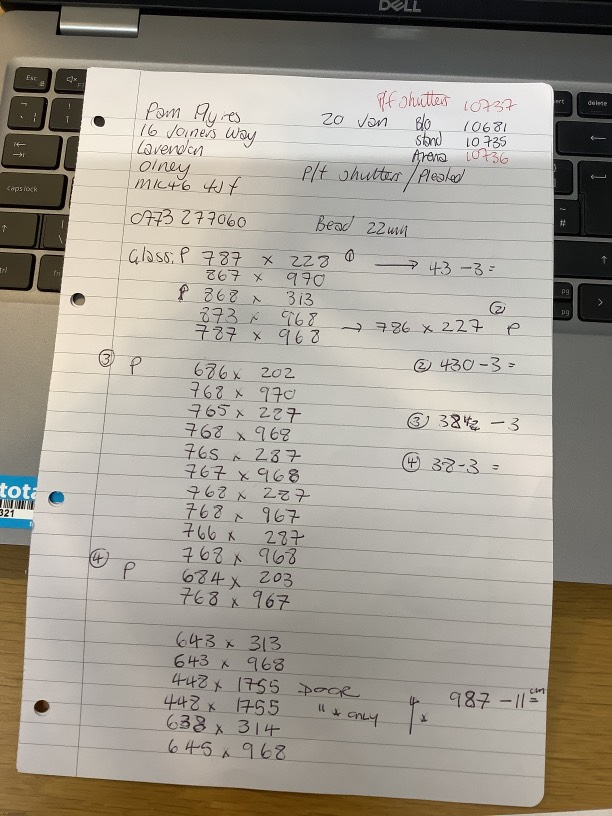 DELL
P/f shutters 10737
Pam Ayres 20 Jan B/o 10681
16 Joiners Way stand 10735
Lavenden Arena 10736
Olney P/f shutters / Pleated
MK46 4JF
0773 277060 Bead 22mm
Glass: P 787 x 228 ① → 43 - 3 =
867 x 970
P 868 x 313
873 x 968 ②
787 x 968 → 786 x 227 P
③ P 686 x 202 ② 430 - 3 =
768 x 970
765 x 287 ③ 38 1/2 - 3
768 x 968
765 x 287 ④ 38 - 3 =
767 x 968
768 x 287
768 x 967
766 x 287
④ 768 x 968
P 684 x 203
768 x 967
643 x 313
643 x 968
448 x 1755 DOOR 987 - 11cm =
448 x 1755 " * only
638 x 314
645 x 968
Esc
caps lock
delete
pg
pg
tota
321